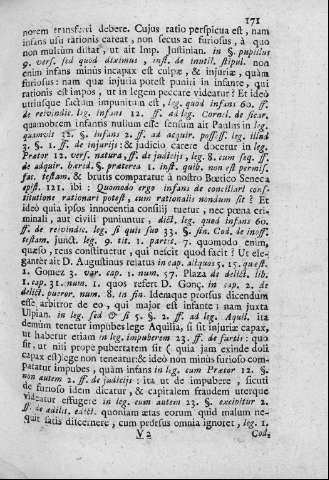 171
norem transferri debere. Cujus ratio perspicua est, nam
infans usu rationis careat, non secus ac furiosus, à quo
non multùm distat, ut ait Imp. Justinian. in §. pupillus
9. vers. sed quod diximus, inst. de inutil. stipul. non
enim infans minùs incapax est culpæ, & injuriæ, quàm
furiosus: nam quæ injuria potest puniri in infante, qui
rationis est impos, ut in legem peccare videatur? Et ideò
utriusque factum impunitum est, leg. quod infans 60. ff.
de reivindic. leg. infans 12. ff. ad leg. Cornel. de sicar.
quamobrem infantis nullum esse sensum ait Paulus in leg.
quamvis 32. §. infans 2. ff. ad acquir. poss. ff. leg. illud
3. §. 1. ff. de injurijs: & judicio carere docetur in leg.
Prætor 12. vers. natura, ff. de judicijs, leg. 8. cum seq. ff.
de adquir. hæred. §. præterea 1. inst. quib. non est permis.
fac. testam. & brutis comparatur à nostro Bœtico Seneca
epist. 121. ibi: Quomodo ergo infans de conciliari cons-
titutione rationari potest, cum rationalis nondum sit? Et
ideò quia ipsos innocentia consilij tuetur, nec pœna cri-
minali, aut civili puniuntur, dict. leg. quod infans 60.
ff. de reivindic. leg. si quis suo 33. §. fin. Cod. de inoff.
testam. junct. leg. 9. tit. 1. partit. 7. quomodo enim,
quæso, reus constituetur, qui nescit quod facit? Ut ele-
gantèr ait D. Augustinus relatus in cap. aliquos 5. 15. quæst.
1. Gomez 3. var. cap. 1. num. 57. Plaza de delict. lib.
1. cap. 31. num. 1. quos refert D. Gonç. in cap. 2. de
delict. pueror. num. 8. in fin. Idemque prorsus dicendum
esse arbitror de eo, qui major est infante: nam juxta
Ulpian. in leg. sed & si 5. §. 2. ff. ad leg. Aquil. ita
demùm tenetur impubes lege Aquilia, si sit injuriæ capax,
ut habetur etiam in leg. impuberem 23. ff. de furtis: quo
sit, ut nisi prope pubertatem sit (quia jam exinde doli
capax est) lege non teneatur: & ideò non minùs furioso com-
patatur impubes, quàm infans in leg. cum Prætor 12. §.
non autem 2. ff. de judicijs: ita ut de impubere, sicuti
de furioso idem dicatur, & capitalem fraudem uterque
videatur effugere in leg. cum autem 23. §. excipitur 2.
ff. de ædilit. edict. quoniam ætas eorum quid malum ne-
quit satis discernere, cum prorsus omnia ignoret, leg. 1.
V 2 Cod.